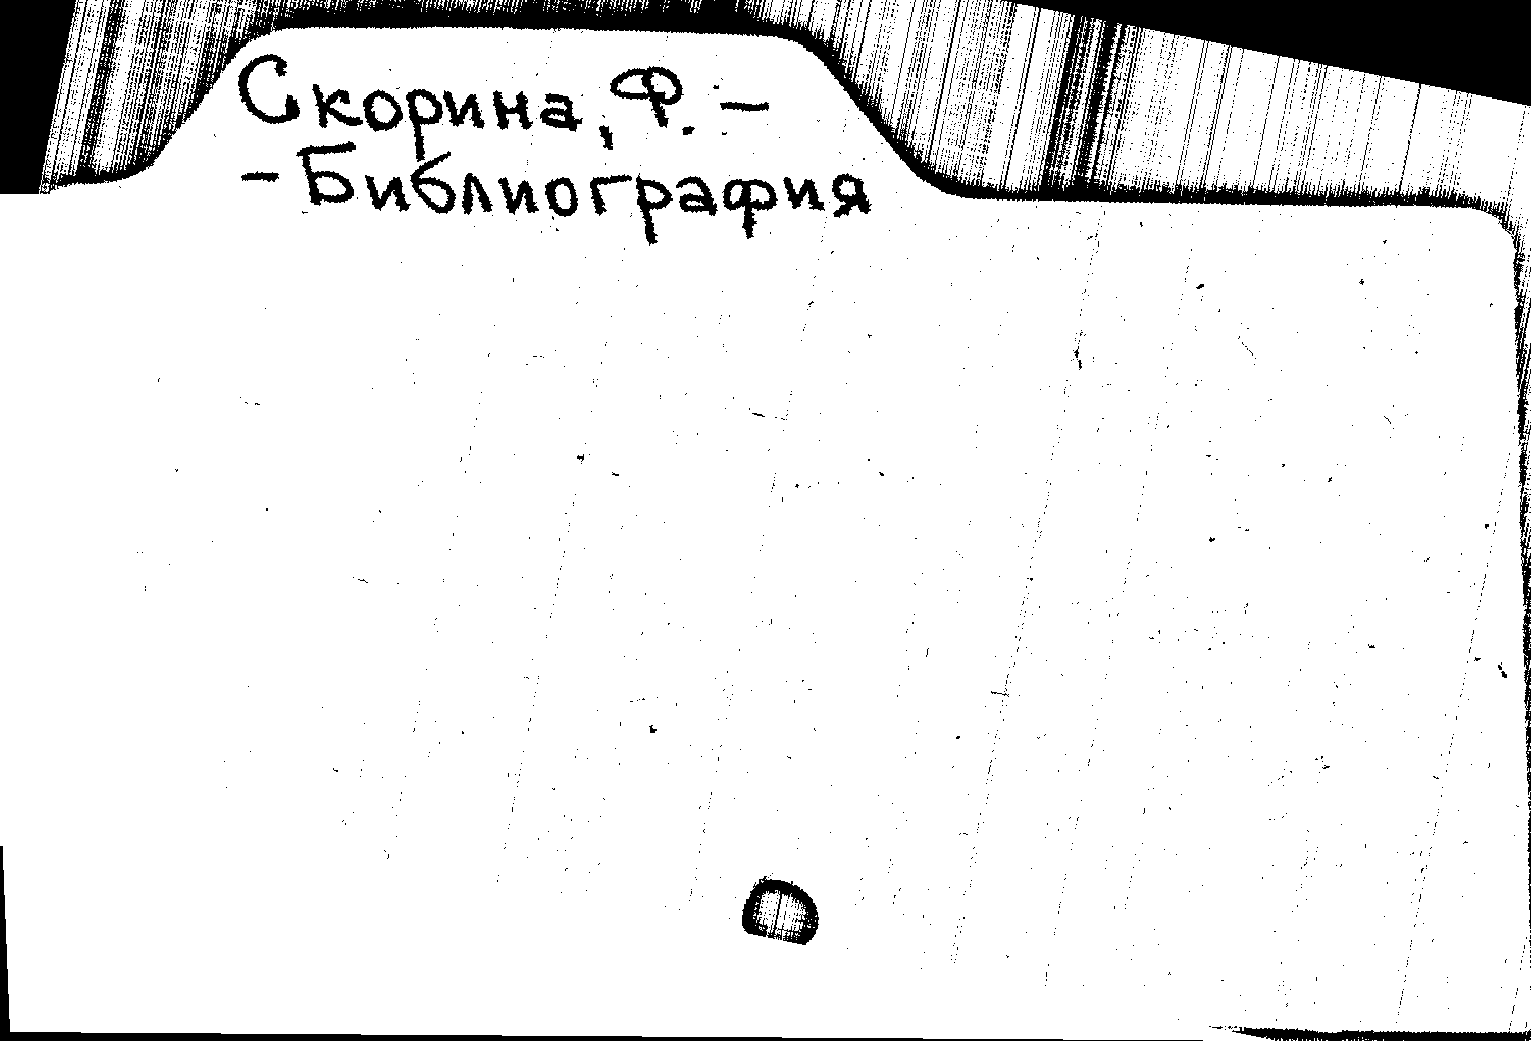 Скорина, Ф. –
– Библиография